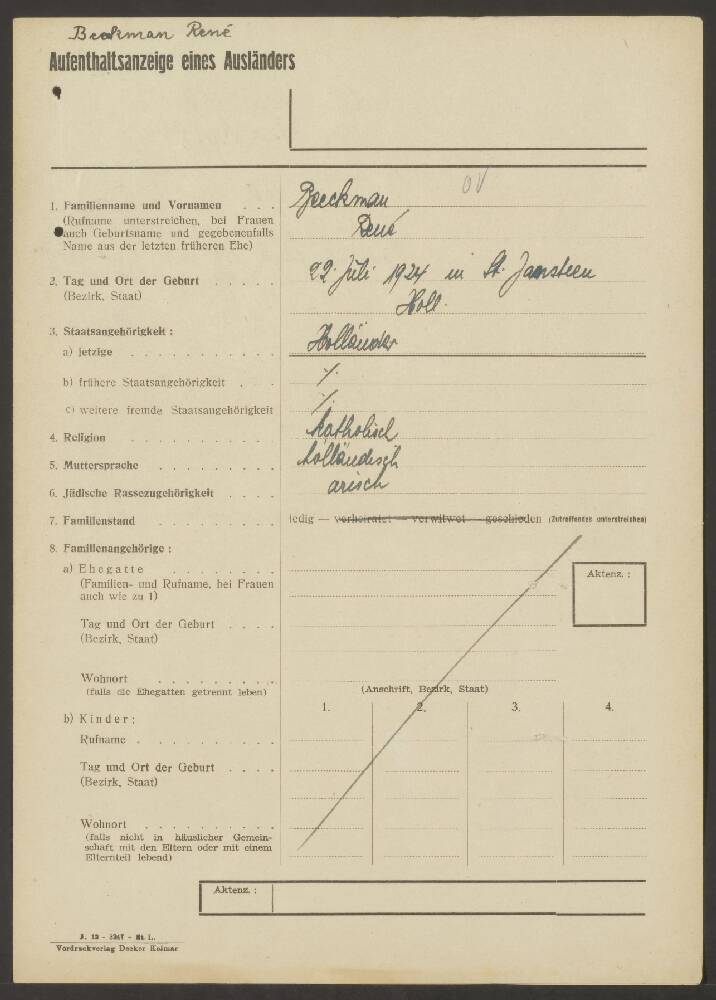 Beekman René
Aufenthaltsanzeige eines Ausländers
1. Familienname und Vornamen . . .
(Rufname unterstreichen, bei Frauen
auch Geburtsname und gegebenenfalls
Name aus der letzten früheren Ehe)
Beeckman
René
OV
2. Tag und Ort der Geburt . . . . .
(Bezirk, Staat)
22. Juli 1924 in St. Jansteen
Holl.
3. Staatsangehörigkeit :
a) jetzige . . . . . . . . . .
Holländer
b) frühere Staatsangehörigkeit . . .
./.
c) weitere fremde Staatsangehörigkeit
./.
4. Religion . . . . . . . . .
katholisch
5. Muttersprache . . . . . . . .
holländisch
6. Jüdische Rassezugehörigkeit . . . .
arisch
7. Familienstand . . . . . . . .
ledig — verheiratet — verwitwet — geschieden (Zutreffendes unterstreichen)
8. Familienangehörige :
a) Ehegatte . . . . . . .
(Familien- und Rufname, bei Frauen
auch wie zu 1)
Aktenz. :
Tag und Ort der Geburt . . . .
(Bezirk, Staat)
Wohnort . . . . . . . . .
(falls die Ehegatten getrennt leben)
(Anschrift, Bezirk, Staat)
b) Kinder:
1. 2. 3. 4.
Rufname . . . . . . . . .
Tag und Ort der Geburt . . . .
(Bezirk, Staat)
Wohnort . . . . . . . . .
(falls nicht in häuslicher Gemein-
schaft mit den Eltern oder mit einem
Elternteil lebend)
Aktenz. :
Vordruckverlag Decker Kolmar